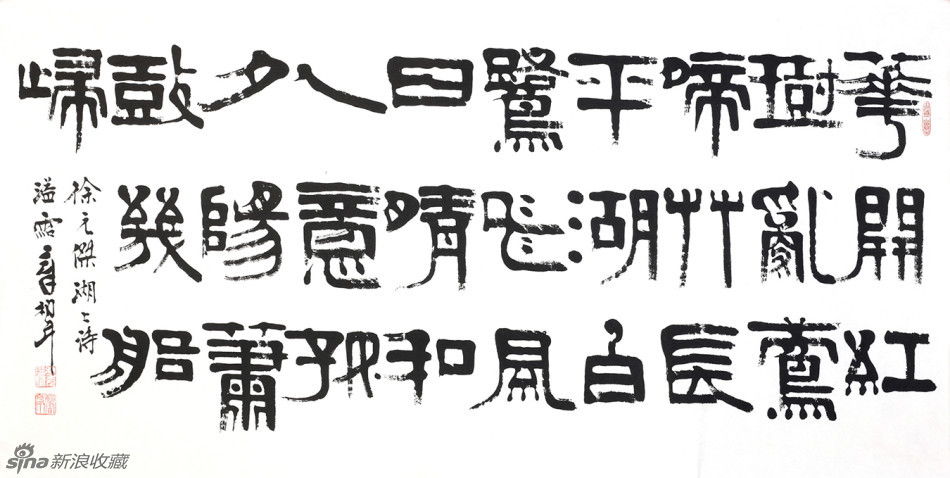 華開紅
樹亂鶯
啼艸長
平湖白
鷺飛風
日晴和
人意好
夕陽蕭
鼓幾船
㱕
徐元傑湖上詩
sina新浪收藏